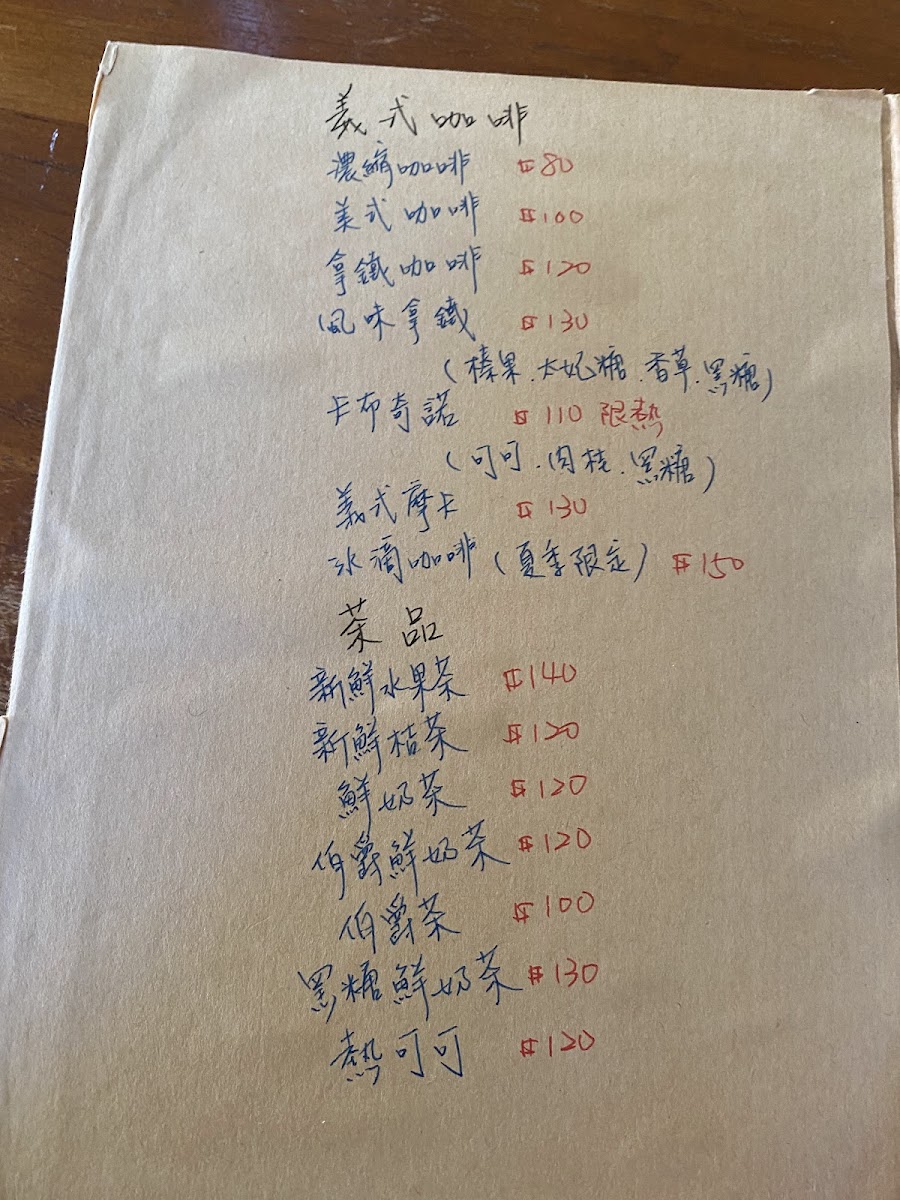 義式咖啡
濃縮咖啡 $80
美式咖啡 $100
拿鐵咖啡 $120
風味拿鐵 $130
(榛果.太妃糖.香草.黑糖)
卡布奇諾 $110 限熱
(可可.肉桂.黑糖)
義式摩卡 $130
冰滴咖啡(夏季限定) $150
茶品
新鮮水果茶 $140
新鮮桔茶 $120
鮮奶茶 $120
伯爵鮮奶茶 $120
伯爵茶 $100
黑糖鮮奶茶 $130
熱可可 $120